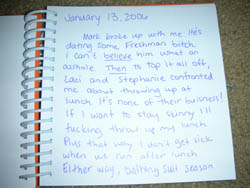 January 13, 2006
Mark broke up with me. He's
dating some Freshman bitch.
I can't believe him what an
asshole. Then to top it all off,
Laci and Stephanie confronted
me about throwing up at
lunch. It's none of their buisness!
If I want to stay skinny I'll
fucking throw up my lunch.
Plus that way I don't get sick
when we run after lunch
Either way, bathing suit season